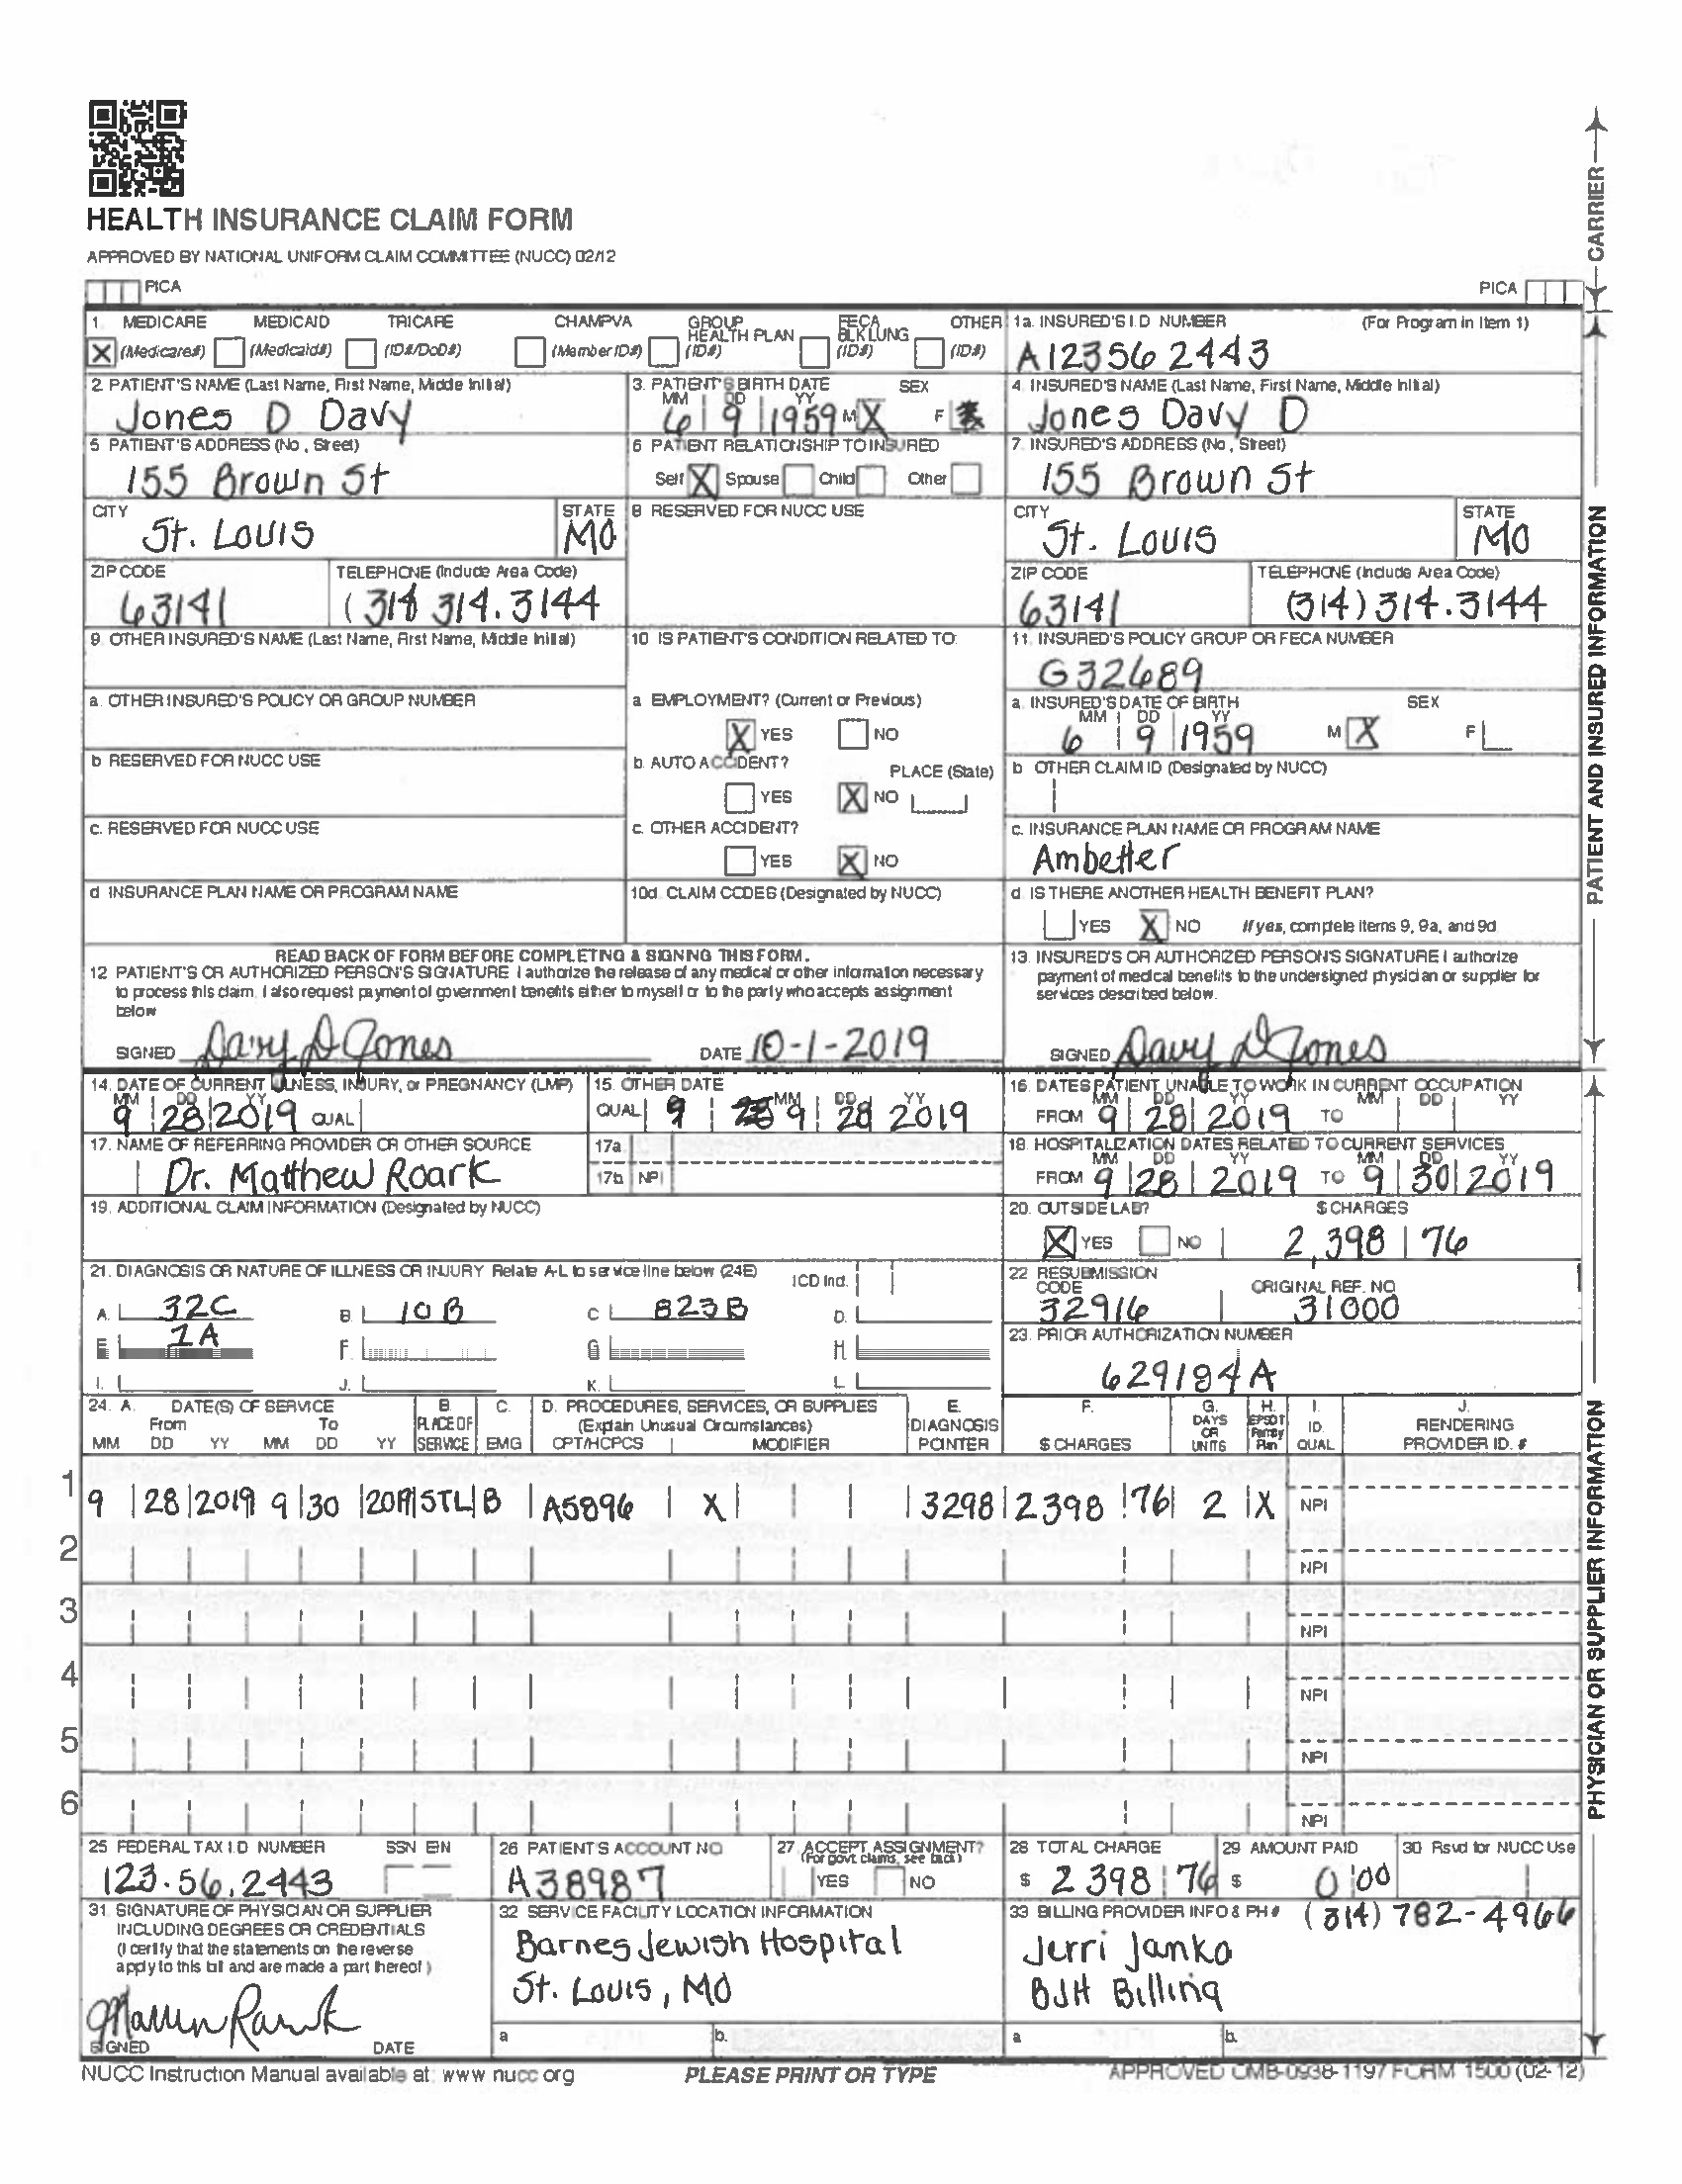 HEALTH INSURANCE CLAIM FORM
APPROVED BY NATIONAL UNIFORM CLAIM COMMITTEE (NUCC) 02/12
PICA
PICA
CARRIER
1. MEDICARE MEDICAID TRICARE CHAMPVA GROUP HEALTH PLAN FECA BLK LUNG OTHER
X (Medicare#) (Medicaid#) (ID#/DoD#) (Member ID#) (ID#) (ID#) (ID#)
1a. INSURED'S I.D. NUMBER (For Program in Item 1)
A123562443
2. PATIENT'S NAME (Last Name, First Name, Middle Initial)
Jones D Davy
3. PATIENT'S BIRTH DATE SEX
MM DD YY
6 9 1959 M X F
4. INSURED'S NAME (Last Name, First Name, Middle Initial)
Jones Davy D
5. PATIENT'S ADDRESS (No., Street)
155 Brown St
6. PATIENT RELATIONSHIP TO INSURED
Self X Spouse Child Other
7. INSURED'S ADDRESS (No., Street)
155 Brown St
CITY STATE
St. Louis MO
8. RESERVED FOR NUCC USE
CITY STATE
St. Louis MO
ZIP CODE TELEPHONE (Include Area Code)
63141 (314 314.3144
ZIP CODE TELEPHONE (Include Area Code)
63141 (314) 314.3144
9. OTHER INSURED'S NAME (Last Name, First Name, Middle Initial)
10. IS PATIENT'S CONDITION RELATED TO:
11. INSURED'S POLICY GROUP OR FECA NUMBER
G32689
a. OTHER INSURED'S POLICY OR GROUP NUMBER
a. EMPLOYMENT? (Current or Previous)
X YES NO
a. INSURED'S DATE OF BIRTH SEX
MM DD YY
6 9 1959 M X F
b. RESERVED FOR NUCC USE
b. AUTO ACCIDENT? PLACE (State)
YES X NO
b. OTHER CLAIM ID (Designated by NUCC)
c. RESERVED FOR NUCC USE
c. OTHER ACCIDENT?
YES X NO
c. INSURANCE PLAN NAME OR PROGRAM NAME
Ambetter
d. INSURANCE PLAN NAME OR PROGRAM NAME
10d. CLAIM CODES (Designated by NUCC)
d. IS THERE ANOTHER HEALTH BENEFIT PLAN?
YES X NO If yes, complete items 9, 9a, and 9d.
READ BACK OF FORM BEFORE COMPLETING & SIGNING THIS FORM.
12. PATIENT'S OR AUTHORIZED PERSON'S SIGNATURE I authorize the release of any medical or other information necessary
to process this claim. I also request payment of government benefits either to myself or to the party who accepts assignment
below.
SIGNED Davy D Jones DATE 10-1-2019
13. INSURED'S OR AUTHORIZED PERSON'S SIGNATURE I authorize
payment of medical benefits to the undersigned physician or supplier for
services described below.
SIGNED Davy D Jones
PATIENT AND INSURED INFORMATION
14. DATE OF CURRENT ILLNESS, INJURY, or PREGNANCY (LMP)
MM DD YY
9 28 2019 QUAL.
15. OTHER DATE
MM DD YY
QUAL. 9 9 28 2019
16. DATES PATIENT UNABLE TO WORK IN CURRENT OCCUPATION
MM DD YY MM DD YY
FROM 9 28 2019 TO
17. NAME OF REFERRING PROVIDER OR OTHER SOURCE
Dr. Matthew Roark
17a.
17b. NPI
18. HOSPITALIZATION DATES RELATED TO CURRENT SERVICES
MM DD YY MM DD YY
FROM 9 28 2019 TO 9 30 2019
19. ADDITIONAL CLAIM INFORMATION (Designated by NUCC)
20. OUTSIDE LAB? $ CHARGES
X YES NO 2,398 76
21. DIAGNOSIS OR NATURE OF ILLNESS OR INJURY Relate A-L to service line below (24E) ICD Ind.
A. 32C B. 10B C. 823B D.
E. 1A F. G. H.
I. J. K. L.
22. RESUBMISSION CODE ORIGINAL REF. NO.
32916 31000
23. PRIOR AUTHORIZATION NUMBER
629184A
24. A. DATE(S) OF SERVICE B. C. D. PROCEDURES, SERVICES, OR SUPPLIES E. F. G. H. I. J.
From To PLACE OF (Explain Unusual Circumstances) DIAGNOSIS DAYS OR EPSDT Family ID. RENDERING
MM DD YY MM DD YY SERVICE EMG CPT/HCPCS MODIFIER POINTER $ CHARGES UNITS Plan QUAL. PROVIDER ID. #
1 9 28 2019 9 30 2019 STL B A5896 X 3298 2398 76 2 X NPI
2 NPI
3 NPI
4 NPI
5 NPI
6 NPI
25. FEDERAL TAX I.D. NUMBER SSN EIN
123.56.2443
26. PATIENT'S ACCOUNT NO.
A38987
27. ACCEPT ASSIGNMENT?
(For govt. claims, see back)
YES NO
28. TOTAL CHARGE
$ 2398 76
29. AMOUNT PAID
$ 0 00
30. Rsvd for NUCC Use
31. SIGNATURE OF PHYSICIAN OR SUPPLIER
INCLUDING DEGREES OR CREDENTIALS
(I certify that the statements on the reverse
apply to this bill and are made a part thereof.)
SIGNED DATE
32. SERVICE FACILITY LOCATION INFORMATION
Barnes Jewish Hospital
St. Louis, MO
a. b.
33. BILLING PROVIDER INFO & PH # (314) 782-4966
Jerri Janko
BJH Billing
a. b.
PHYSICIAN OR SUPPLIER INFORMATION
NUCC Instruction Manual available at: www.nucc.org
PLEASE PRINT OR TYPE
APPROVED OMB-0938-1197 FORM 1500 (02-12)